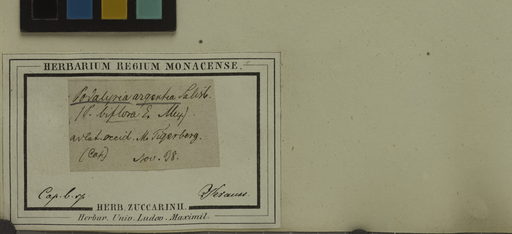 HERBARIUM REGIUM MONACENSE.
Podalyria argentea Salisb.
(P. biflora E. Mey).
ad lat. occid. M. Tigerberg.
(Cap) Nov. 38.
Cap. b. sp. Krauss.
HERB. ZUCCARINII.
Herbar. Univ. Ludov. Maximil.